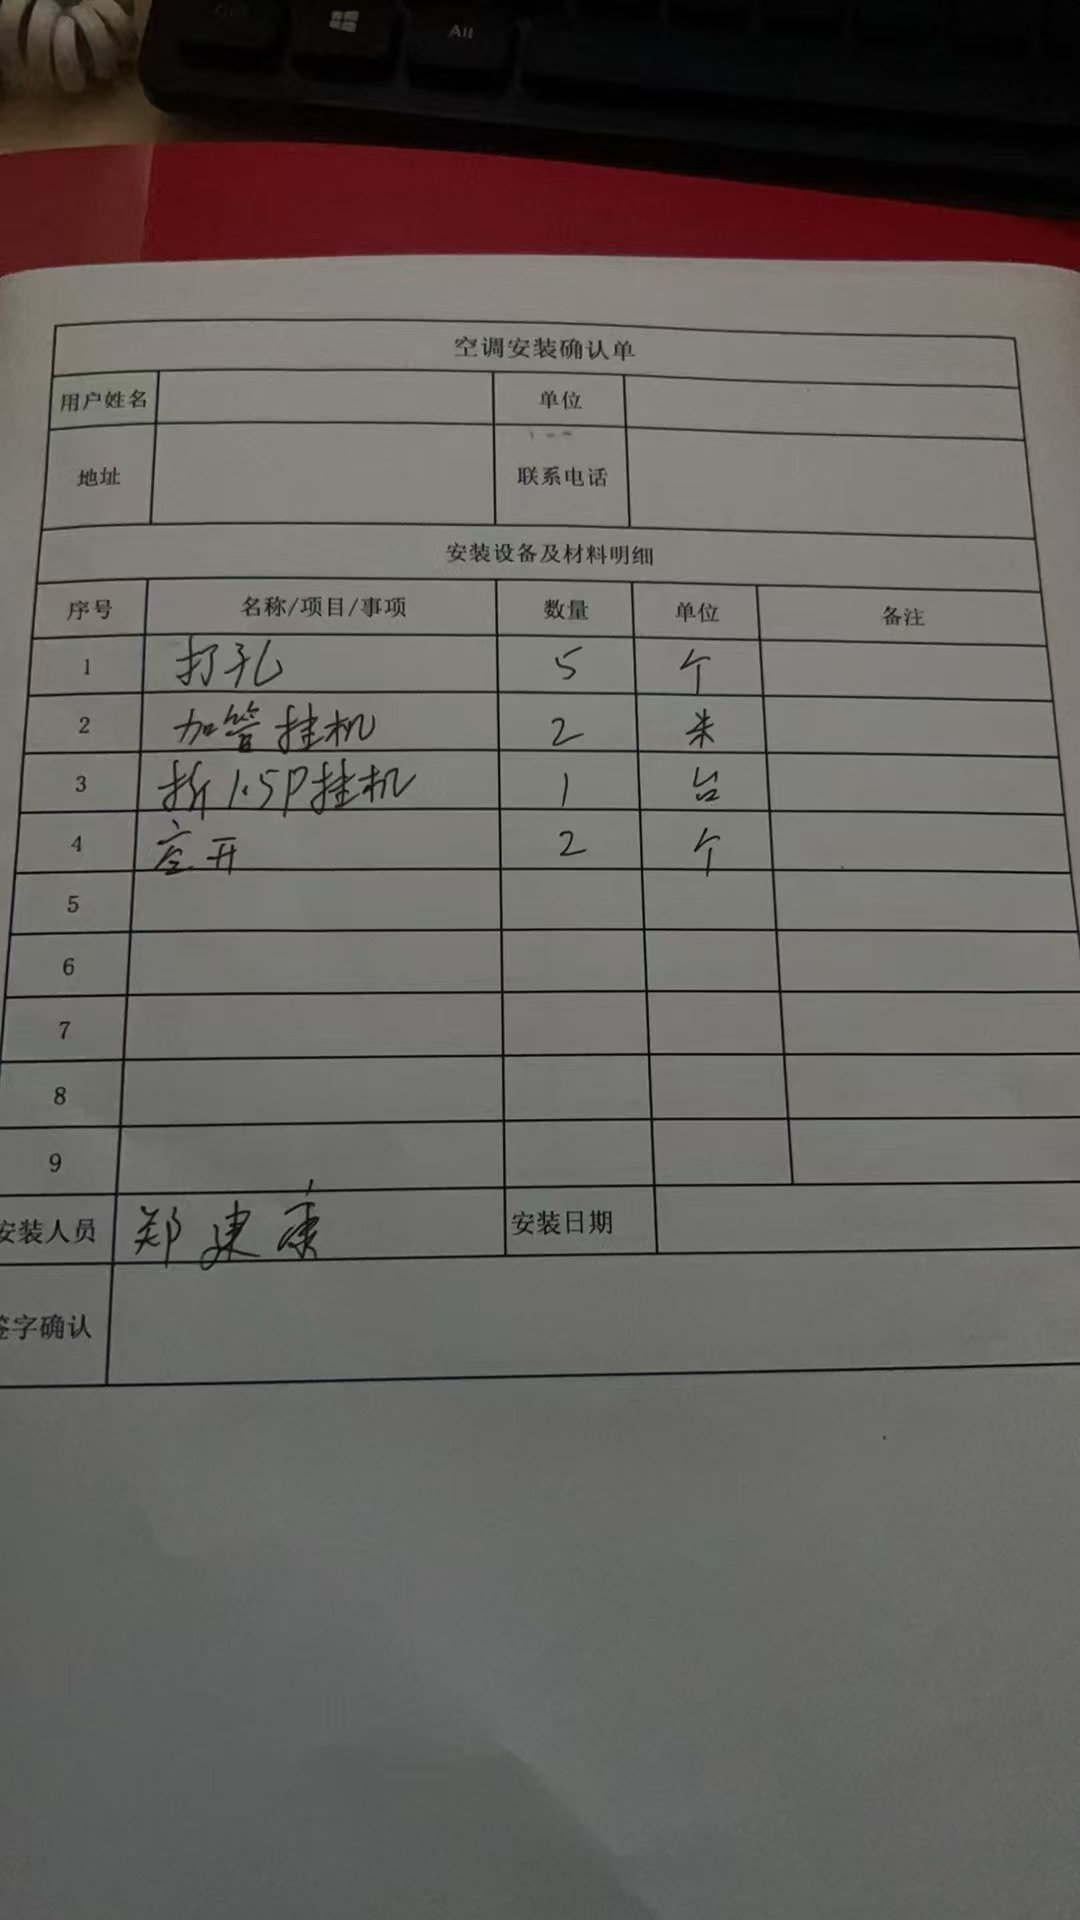 Ctrl
Alt
空调安装确认单
用户姓名 单位
地址 联系电话
安装设备及材料明细
序号 名称/项目/事项 数量 单位 备注
1 打孔 5 个
2 加管挂机 2 米
3 拆1.5P挂机 1 台
4 空开 2 个
5
6
7
8
9
安装人员 郑建康 安装日期
签字确认